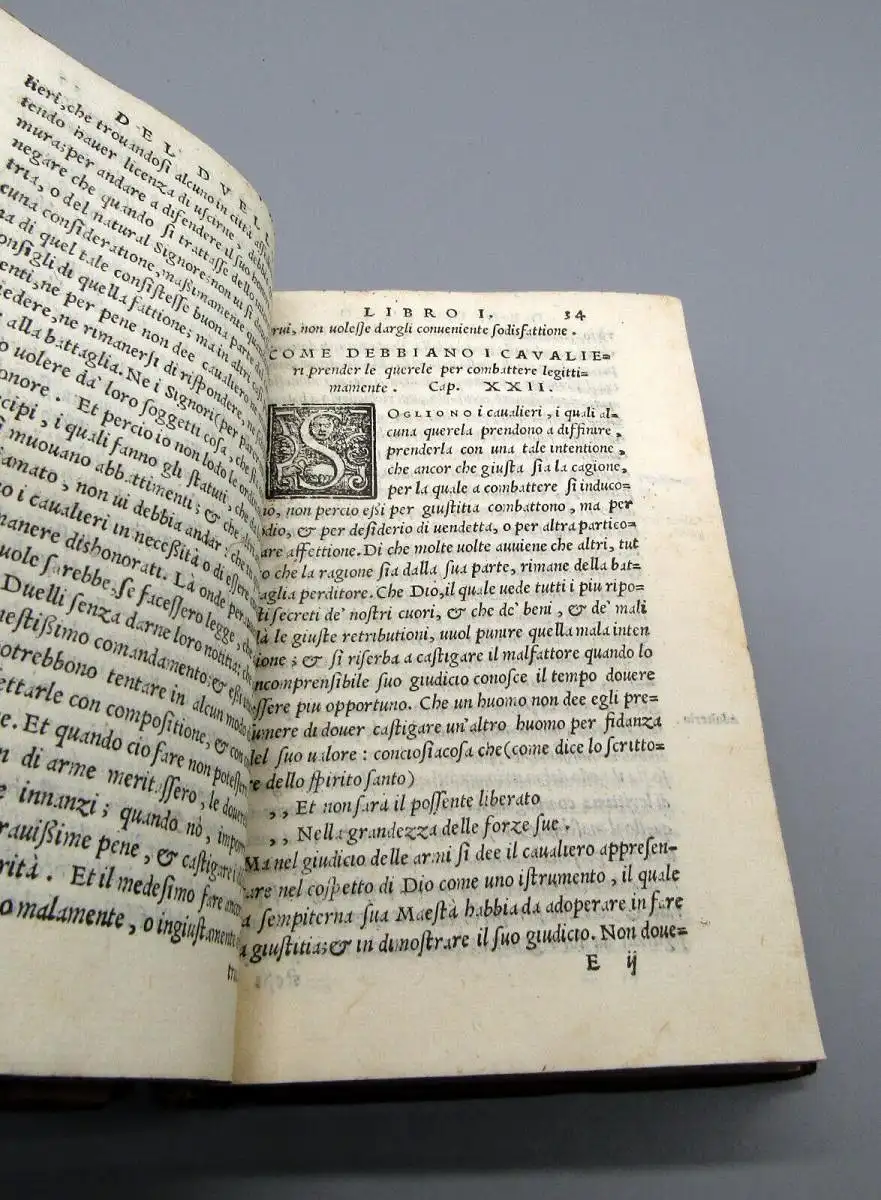 DEL DVELL
lieri, che trouandosi alcuno in città asse
tendo hauer licenza di uscirne, debba
mura; per andare a difendere il suo hono
negare che quando si trattasse dello
tria, o del natural Signore: non ui si d
cuna consideratione, massimamente quan
a di quel tale consistesse buona parte d
onsigli di quella fattione; ma in altri
enti, ne per pene non dee cavaliero
iedere, ne rimanersi di rispondere, ne
alla battaglia. Ne i Signori (per par
o uolere da' loro soggetti cosa, che
onore. Et percio io non lodo le ordi
cipi, i quali fanno gli statuti, che
si muouano abbattimenti; & che
amato, non ui debbia andar: che
o i caualieri in necessità o di essere
manere dishonorati. Là onde per
uole sarebbe, se facessero legge, che
Duelli senza darne loro notitia; che
nestissimo comandamento: & essi
potrebbono tentare in alcun modo
ettarle con compositione, & con
e. Et quando cio fare non potessero
n di arme meritassero, le douer
e innanzi; quando nò, impor
rauissime pene, & castigare i
rità. Et il medesimo fare anco
o malamente, o ingiustamente
tru
LIBRO I. 34
rui, non uolesse dargli conueniente sodisfattione.
COME DEBBIANO I CAVALIE=
ri prender le querele per combattere legitti=
mamente. Cap. XXII.
SOGLIONO i caualieri, i quali al=
cuna querela prendono a diffinire,
prenderla con una tale intentione,
che ancor che giusta sia la cagione,
per la quale a combattere si induco=
no, non percio essi per giustitia combattono, ma per
odio, & per desiderio di uendetta, o per altra partico=
lare affettione. Di che molte uolte auuiene che altri, tut
to che la ragione sia dalla sua parte, rimane della bat=
taglia perditore. Che Dio, il quale uede tutti i piu ripo=
sti secreti de' nostri cuori, & che de' beni, & de' mali
dà le giuste retributioni, uuol punire quella mala inten
tione; & si riserba a castigare il malfattore quando lo
incomprensibile suo giudicio conosce il tempo douere
essere piu opportuno. Che un huomo non dee egli pre=
sumere di douer castigare un'altro huomo per fidanza
del suo ualore: conciosiacosa che (come dice lo scritto=
re dello spirito santo)
,, Et non sarà il possente liberato
,, Nella grandezza delle forze sue.
Ma nel giudicio delle armi si dee il caualiero appresen=
tare nel cospetto di Dio come uno istrumento, il quale
la sempiterna sua Maestà habbia da adoperare in fare
la giustitia; & in dimostrare il suo giudicio. Non doue=
E ij